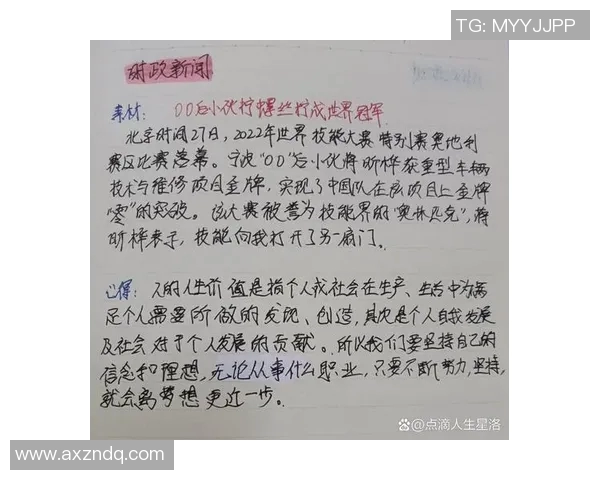 TG: MYYJJPP
时政新闻
素材: 00后小伙拧螺丝拧成世界冠军
北京时间27日,2022年世界技能大赛特别赛奥地利
赛区比赛落幕。宁波"00"后小伙蒋昕桦获重型车辆
技术与维修项目金牌,实现了中国队在该项目上金牌
"零"的突破。该大赛被誉为技能界的"奥林匹克",蒋
昕桦表示,技能向我打开了另一扇门。
心得: 人的人生价值是指个人或社会在生产、生活中为满
足个人需要所做的发现、创造,其次是个人自我发展
及社会对于个人发展的贡献。所以我们要坚持自己的
信念和理想,无论从事什么职业,只要不断努力,坚持,
就会离梦想更近一步。
@点滴人生星洛
www.axzndq.com